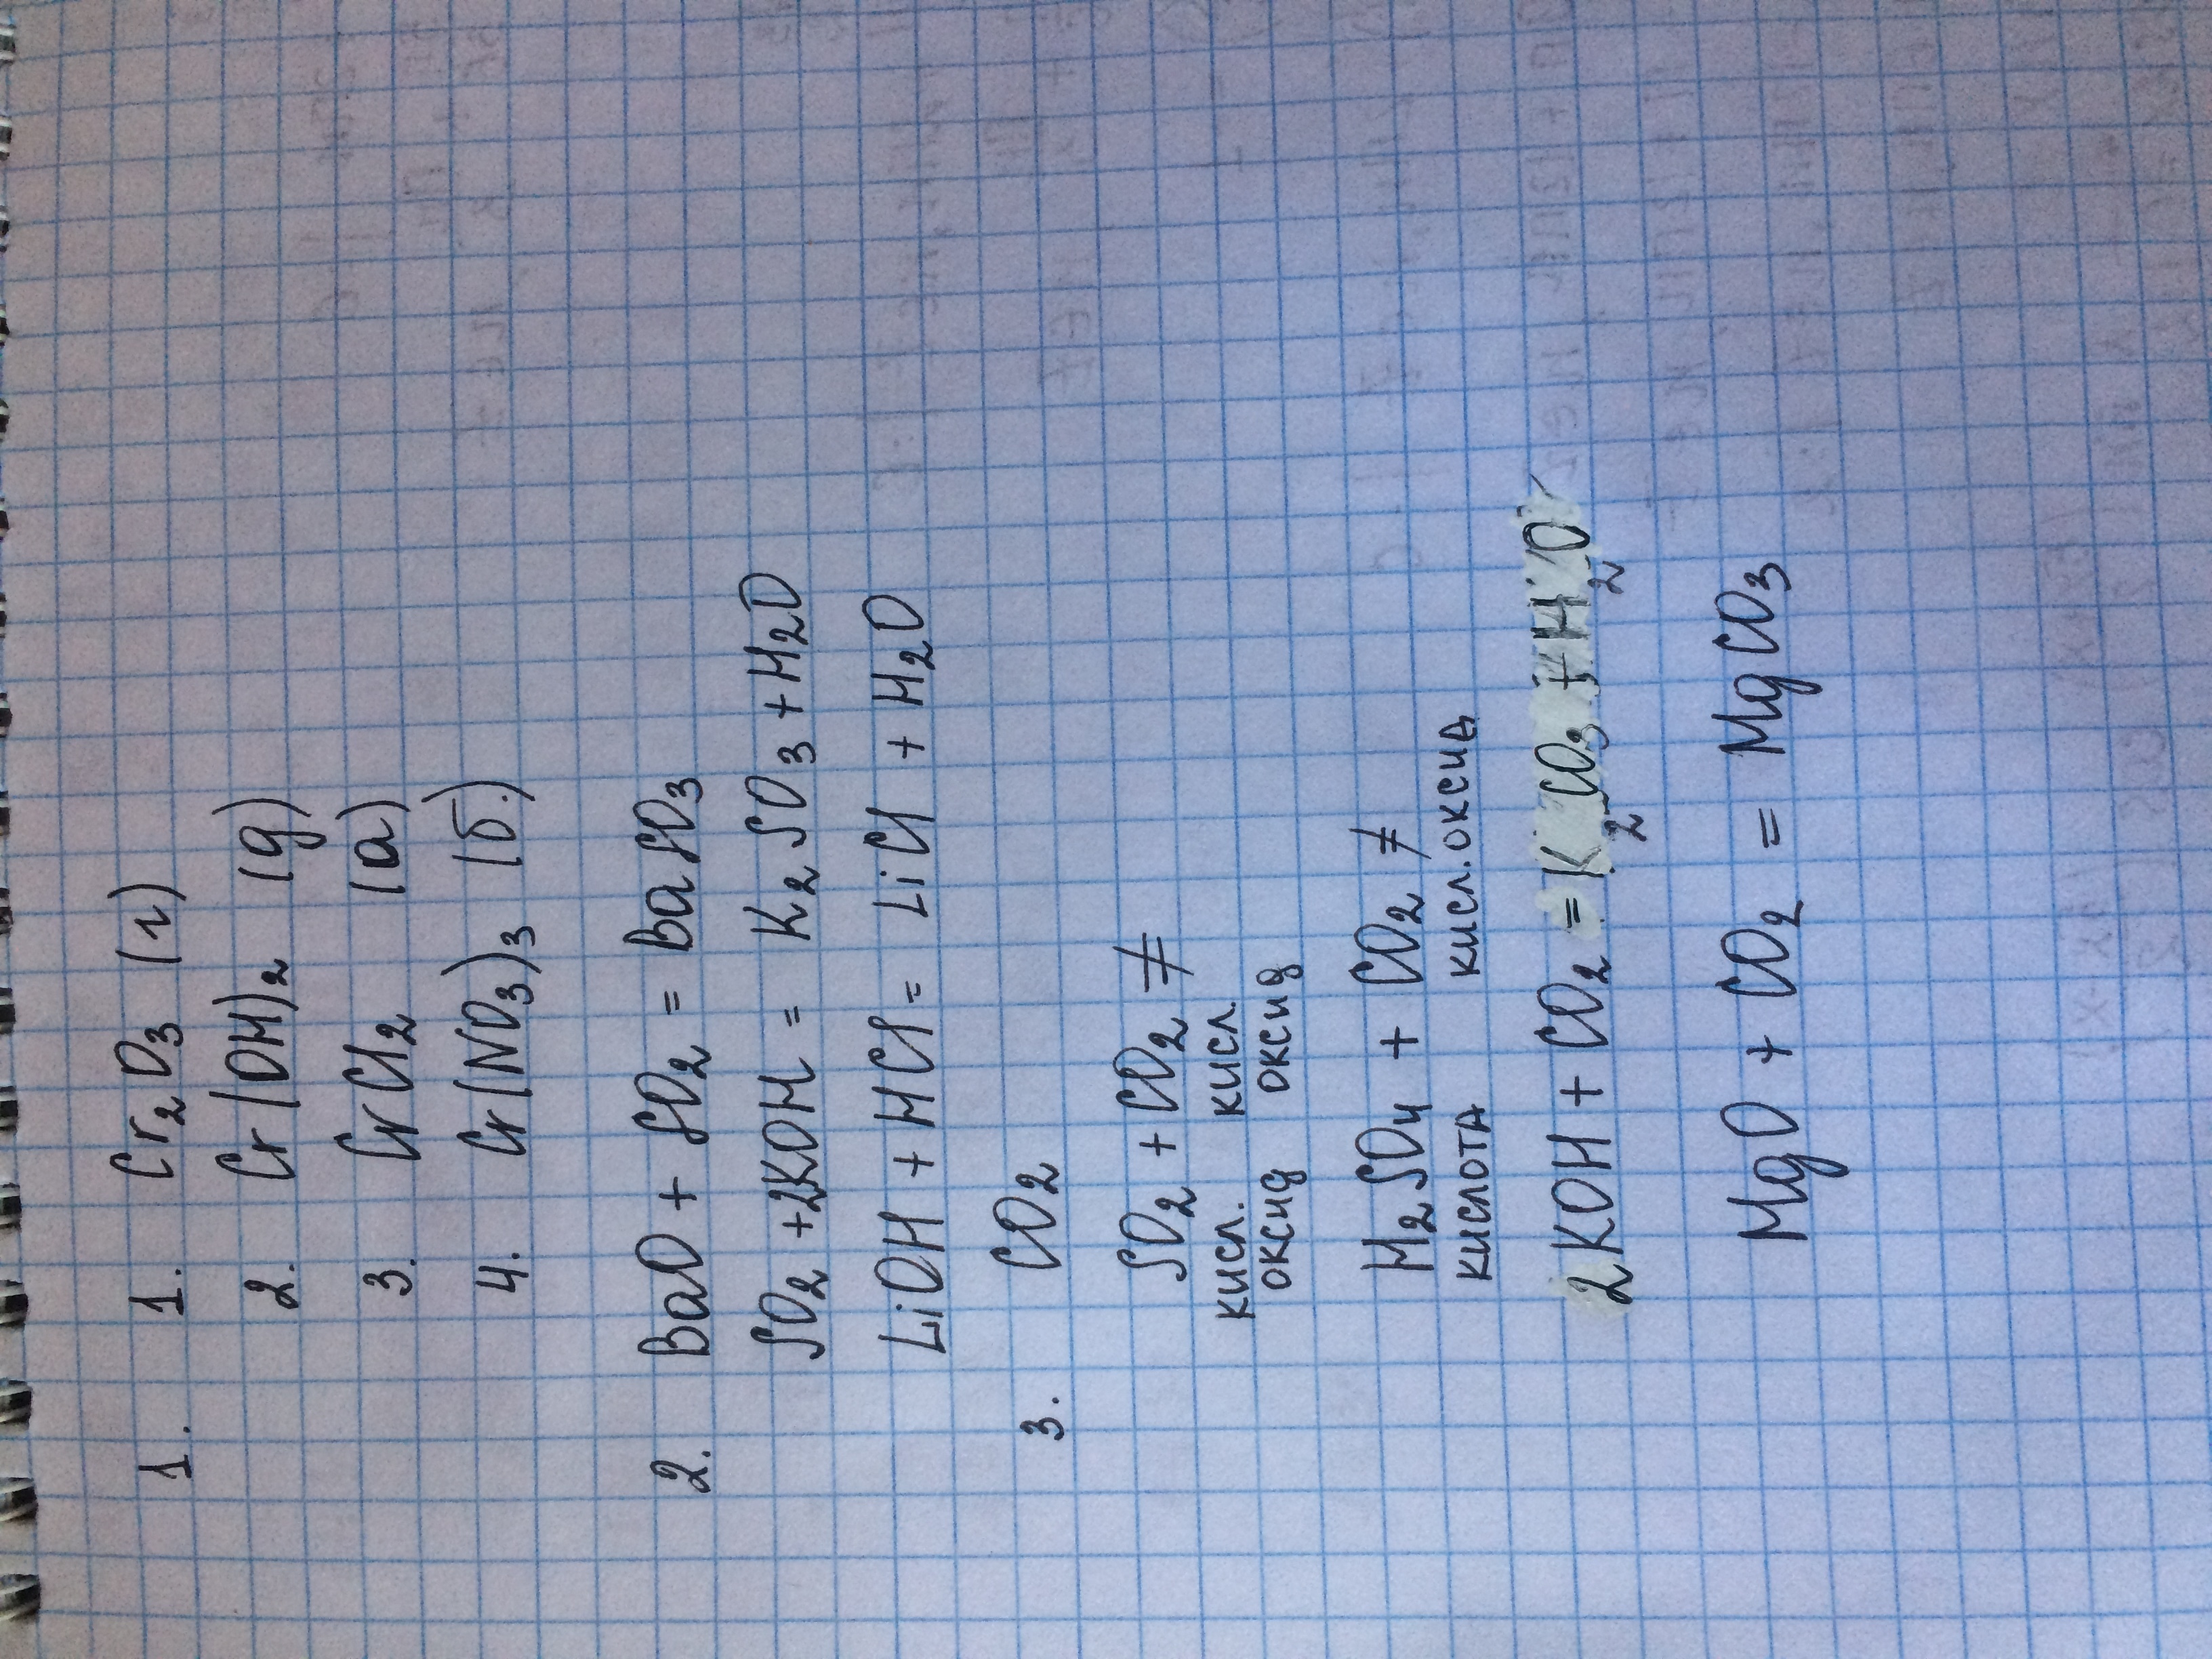 1. 1. Cr₂O₃ (г)
2. Cr(OH)₂ (д)
3. CrCl₂ (а)
4. Cr(NO₃)₃ (б.)
2. BaO + SO₂ = BaSO₃
SO₂ + 2KOH = K₂SO₃ + H₂O
LiOH + HCl = LiCl + H₂O
3. CO₂
SO₂ + CO₂ ≠
кисл. кисл.
оксид оксид
H₂SO₄ + CO₂ ≠
кислота кисл. оксид
2KOH + CO₂ = K₂CO₃ + H₂O
MgO + CO₂ = MgCO₃